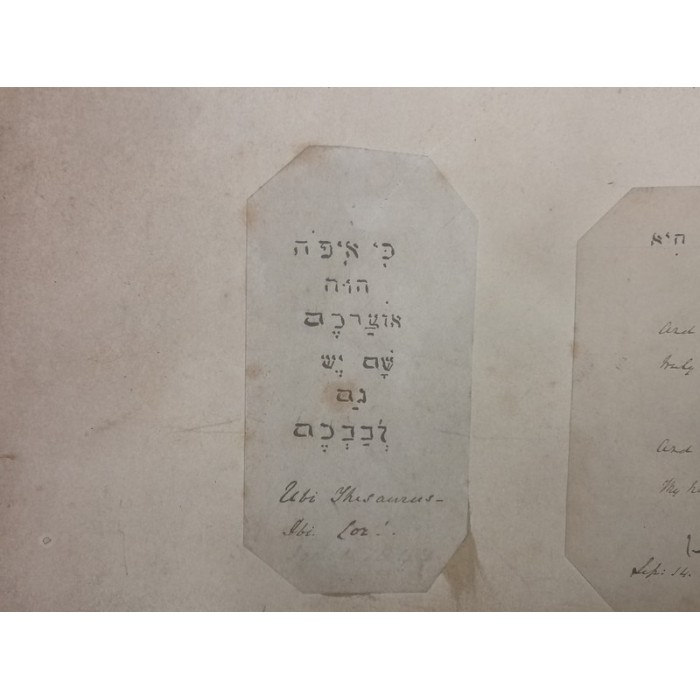 כִּי אִיפֹה
הוּה
אוֹצַרכֶם
שָׁם יֶש
גַם
לְבַבְכֶם
Ubi Thesaurus-
Ibi Cor!.
הִיא
And
truly
And
My
Sept 14.